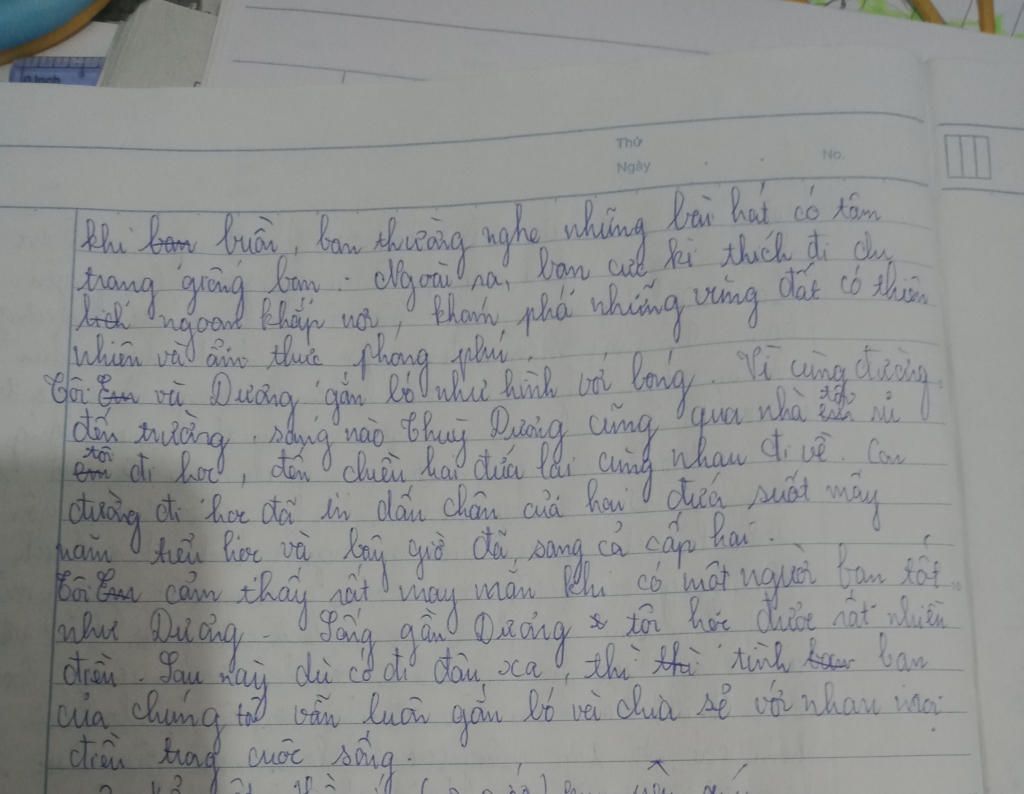 Thứ
Ngày
No.
khi buồn, bạn thường nghe những bài hát có tâm
trạng giống bạn. Ngoài ra, bạn cực kì thích đi du
lịch ngoạn khắp nơi, khám phá những vùng đất có thiên
nhiên và ẩm thực phong phú.
Tôi và Dương gắn bó như hình với bóng. Vì cùng đường
đến trường, sáng nào Thuỳ Dương cũng qua nhà tôi rủ
tôi đi học, đến chiều hai đứa lại cùng nhau đi về. Con
đường đi học đã in dấu chân của hai đứa suốt mấy
năm tiểu học và bây giờ đã sang cả cấp hai.
Tôi cảm thấy rất may mắn khi có một người bạn tốt
như Dương. Sống gần Dương tôi học được rất nhiều
điều. Sau này dù có đi đâu xa, thì tình bạn
của chúng tôi vẫn luôn gắn bó và chia sẻ với nhau mọi
điều trong cuộc sống.